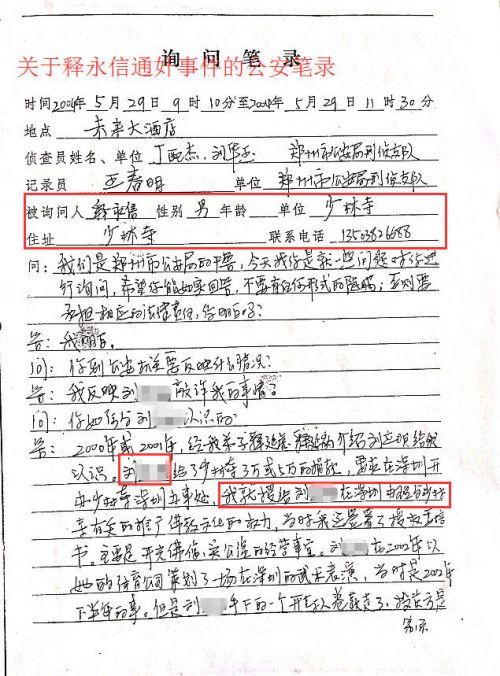 询问笔录
关于释永信通奸事件的公安笔录
时间2004年5月29日9时10分至2004年5月29日11时30分
地点 未来大酒店
侦查员姓名、单位 丁 杰、刘华 郑州市公安局刑侦支队
记录员 王春明 单位 郑州市公安局刑侦支队
被询问人 释永信 性别 男 年龄 单位 少林寺
住址 少林寺 联系电话
问:我们是郑州市公安局的干警,今天我们是就一些问题对你进
行询问,希望你能如实回答,不要有任何形式的隐瞒,否则要
承担相应的法律责任,你明白吗?
答:我明白。
问:你到公安机关要反映什么情况?
答:我反映刘 敲诈我的事情?
问:你如何与刘 认识的
答:2000年或2001年,经我弟子释延 介绍刘
认识。刘 给了少林寺3万或5万的捐款,要求在深圳开
办少林寺深圳办事处,我就授给刘 在深圳 少林
寺有关的推广佛教文化的权力,当时我还签署了授权委托
书。主要是开光佛像、 的经营事宜。刘 在2002年以
她的体育公司策划了一场在深圳的武术表演,当时是2002年
下半年的事。但是刘 手下的一个